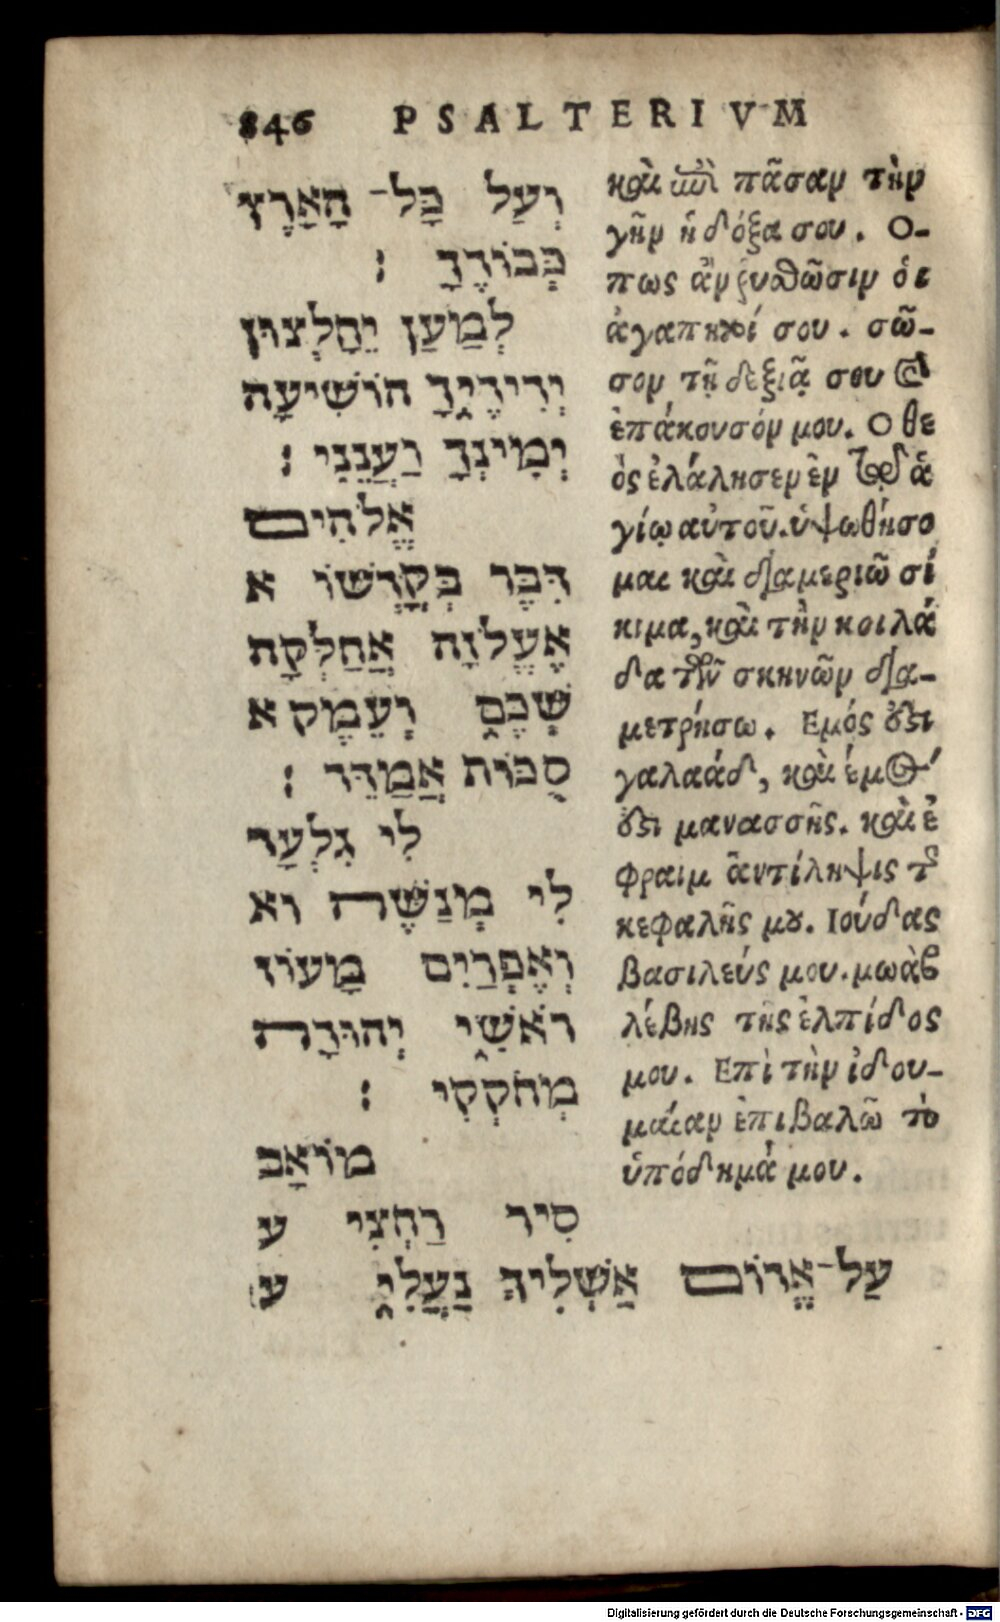 846 PSALTERIVM
וְעַל כָּל־ הָאָרֶץ
כְּבוֹדֶךָ :
לְמַעַן יֵחָלְצוּן
יְדִידֶיךָ הוֹשִׁיעָה
יְמִינְךָ וַעֲנֵנִי :
אֱלֹהִים
דִּבֶּר בְּקָדְשׁוֹ א
אֶעֱלוֹזָה אֲחַלְּקָה
שְׁכֶם וְעֵמֶק א
סֻכּוֹת אֲמַדֵּד :
לִי גִלְעָד
לִי מְנַשֶּׁה וא
וְאֶפְרַיִם מָעוֹז
רֹאשִׁי יְהוּדָה
מְחֹקְקִי :
מוֹאָב
סִיר רַחְצִי ע
עַל־אֱדוֹם אַשְׁלִיךְ נַעֲלִי ע
καὶ ἐπὶ πᾶσαν τὴν
γῆν ἡ δόξα σου. Ο-
πως ἂν ῥυσθῶσιν ὁι
ἀγαπητοί σου. σῶ-
σον τῇ δεξιᾷ σου καὶ
ἐπάκουσόν μου. Ο θε
ὸς ἐλάλησεν ἐν τῷ ἁ
γίῳ αὐτοῦ. ὑψωθήσο
μαι καὶ διαμεριῶ σί
κιμα, καὶ τὴν κοιλά
δα τῶν σκηνῶν δια-
μετρήσω. Εμός ἐστι
γαλαάδ, καὶ ἐμός
ἐστι μανασσῆς. καὶ ἐ
φραιμ ἀντίληψις τῆς
κεφαλῆς μου. Ιούδας
βασιλεύς μου. μωὰβ
λέβης τῆς ἐλπίδος
μου. Επὶ τὴν ἰδου-
μαίαν ἐπιβαλῶ τὸ
ὑπόδημά μου.
Digitalisierung gefördert durch die Deutsche Forschungsgemeinschaft - DFG